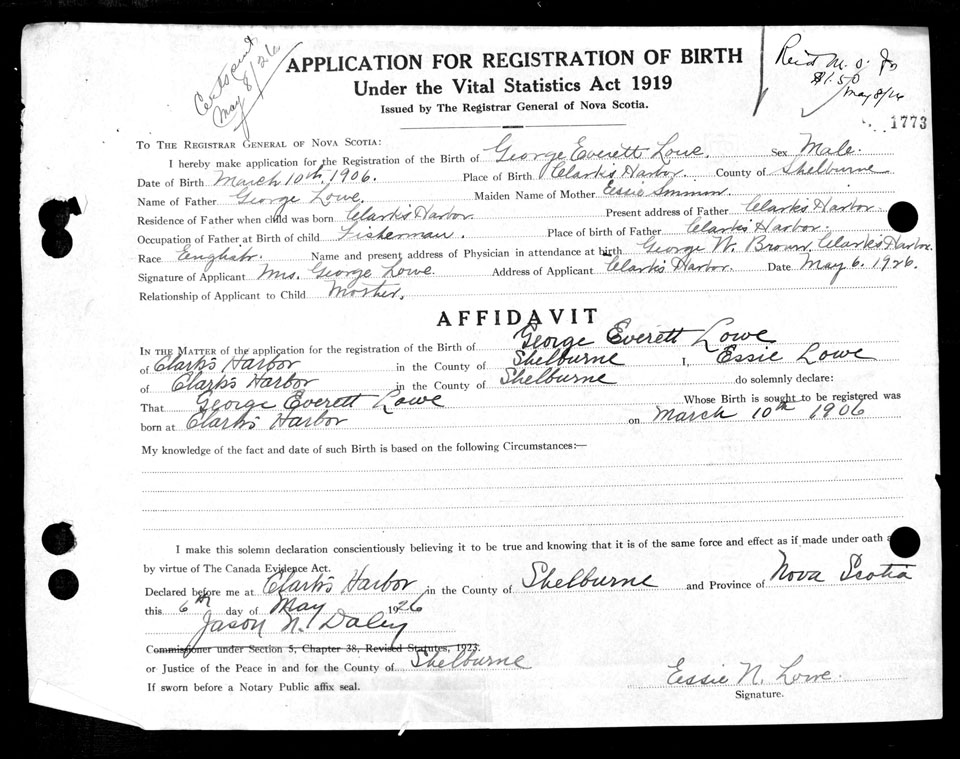 Cert sent
May 8/26
Rec'd M. O. for
$1.50
May 8/26
1773
APPLICATION FOR REGISTRATION OF BIRTH
Under the Vital Statistics Act 1919
Issued by The Registrar General of Nova Scotia.
To The Registrar General of Nova Scotia:
I hereby make application for the Registration of the Birth of George Everett Lowe. Sex Male.
Date of Birth March 10th 1906. Place of Birth Clark's Harbor County of Shelburne
Name of Father George Lowe. Maiden Name of Mother Essie
Residence of Father when child was born Clark's Harbor Present address of Father Clark's Harbor
Occupation of Father at Birth of child Fisherman. Place of birth of Father Clark's Harbor.
Race English. Name and present address of Physician in attendance at birth George W. Brown, Clark's Harbor.
Signature of Applicant Mrs. George Lowe. Address of Applicant Clark's Harbor. Date May 6. 1926.
Relationship of Applicant to Child Mother.
AFFIDAVIT
In the Matter of the application for the registration of the Birth of George Everett Lowe
of Clark's Harbor in the County of Shelburne I, Essie Lowe
of Clark's Harbor in the County of Shelburne do solemnly declare:
That George Everett Lowe Whose Birth is sought to be registered was
born at Clark's Harbor on March 10th 1906
My knowledge of the fact and date of such Birth is based on the following Circumstances:—
I make this solemn declaration conscientiously believing it to be true and knowing that it is of the same force and effect as if made under oath
by virtue of The Canada Evidence Act.
Declared before me at Clark's Harbor in the County of Shelburne and Province of Nova Scotia
this 6th day of May 1926
Jason N. Daley
Commissioner under Section 5, Chapter 38, Revised Statutes, 1923.
or Justice of the Peace in and for the County of Shelburne
If sworn before a Notary Public affix seal.
Essie N. Lowe.
Signature.